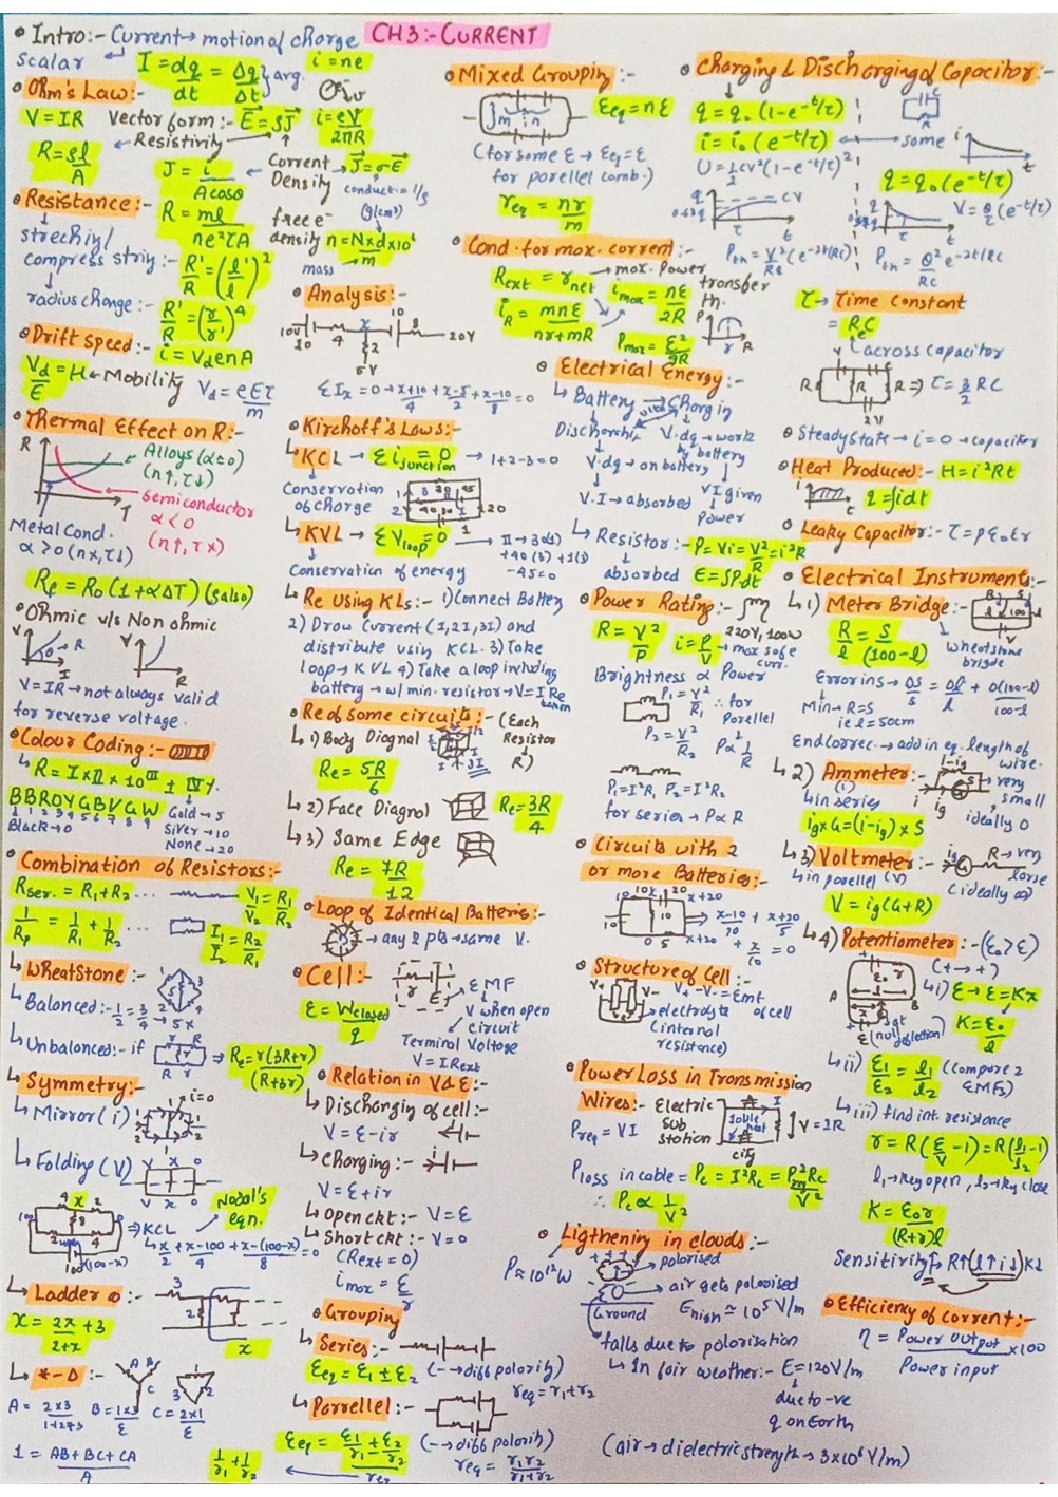 • Intro:- Current → motion of charge
CH3:- CURRENT
scalar
I = dq/dt = Δq/Δt } avg.
i = ne
• Ohm's Law:-
V = IR
Vector form:- E = ρJ
i = eV/2πR
→ Resistivity
R = ρl/A
J = i/A cosθ
Current Density
J = σE
• Resistance:-
R = ml/ne²τA
free e⁻ density
n = N×d×10⁶/m
mass
compress string:-
R'/R = (l'/l)²
radius change:-
R'/R = (r/r')⁴
• Drift speed:-
i = VdenA
Vd/E = μ ← Mobility
Vd = eEτ/m
• Thermal Effect on R:-
R
Alloys (α≈0)
(n↑, τ↓)
Semiconductor
α < 0
(n↑, τ×)
T
Metal Cond.
α > 0 (n×, τ↓)
Rf = R₀(1+αΔT) (ρ also)
• Ohmic v/s Non ohmic
V = IR → not always valid
for reverse voltage.
• Colour Coding:-
↳ R = I×II × 10^III ± IV%.
BBROYGBVGW
0 1 2 3 4 5 6 7 8 9
Black → 0
Gold → 5
Silver → 10
None → 20
• Combination of Resistors:-
Rser. = R₁+R₂...
V₁/V₂ = R₁/R₂
1/Rp = 1/R₁ + 1/R₂ ...
I₁/I₂ = R₂/R₁
↳ WheatStone:-
↳ Balanced:- 1/2 = 3/4 → 5×
↳ Unbalanced:- if
Re = r(3R+r)/(R+3r)
↳ Symmetry:-
↳ Mirror (i)
i=0
↳ Folding (V)
V x 0
Nodal's eqn.
⇒ KCL
↳ x/2 + x-100/4 + x-(100-x)/8 = 0
↳ Ladder ∞:-
x = 2x/2+x + 3
x
↳ *-Δ:-
A = 2×3/1+2+3
B = 1×3/Σ
C = 2×1/Σ
1 = AB+BC+CA/A
• Analysis:-
10V
20V
5V
ΣIx = 0 → x+10/4 + x-5/2 + x-10/8 = 0
• Kirchoff's Laws:-
↳ KCL → Σi junction = 0 → 1+2-3=0
Conservation of charge
↳ KVL → ΣVloop = 0
Conservation of energy
↳ Re Using KLs:- 1) Connect Battery
2) Draw Current (I, 2I, 3I) and
distribute using KCL. 3) Take
loop → KVL 4) Take a loop including
battery → w/ min. resistor → V = IRe
• Re of some circuits:- (Each Resistor R)
↳ 1) Body Diagnal
Re = 5R/6
↳ 2) Face Diagnol
Re = 3R/4
↳ 3) Same Edge
Re = 7R/12
• Loop of Identical Batteris:-
→ any 2 pts → same V.
• Cell:-
E = Wclosed/q
EMF
V when open circuit
Terminal Voltage
V = IRext
• Relation in V & E:-
↳ Discharging of cell:-
V = E-ir
↳ Charging:-
V = E+ir
↳ open ckt:- V = E
↳ Short ckt:- V = 0
(Rext = 0)
imax = E/r
• Grouping
↳ Series:-
Eeq = E₁ ± E₂ (- → diff polarity)
req = r₁+r₂
↳ Parrellel:-
Eeq = E₁/r₁ ± E₂/r₂ (- → diff polarity)
1/r₁ + 1/r₂
← req
req = r₁r₂/r₁+r₂
• Mixed Grouping:-
Eeq = nE
(for same E → Eeq = E
for parellel comb.)
req = nr/m
• Cond. for max. current:-
Rext = rnet → max. Power transfer th.
imax = nE/2R
iR = mnE/nr+mR
P
R
• Electrical Energy:-
↳ Battery → Charging
V·dq → work by battery
V·dq → on battery
V·I → absorbed
VI given
Power
↳ Resistor:- P = Vi = V²/R = i²R
absorbed E = ∫Pdt
• Power Rating:-
R = V²/P
i = P/V
220V, 100W
→ max safe curr.
Brightness ∝ Power
P₁ = V²/R₁ ∴ for Parellel
P₂ = V²/R₂ P∝ 1/R
P₁=I²R₁ P₂=I²R₂
for series → P∝R
• Circuits with 2
or more Batteries:-
x-10/10 + x+20/5
+ x/10 = 0
• Structure of Cell:-
V₊ - V₋ = Emf of cell
electrolyte
(internal resistance)
• Power Loss in Transmission
Wires:-
Electric Sub station
city
V = IR
Preq = VI
Ploss in cable = Pc = I²Rc = P²Rc/V²
∴ Pc ∝ 1/V²
• Ligthening in clouds:-
P ≈ 10¹²W
→ polarised
→ air gets polarised
Ground
Ehigh ≈ 10⁵ V/m
falls due to polarisation
↳ In fair weather:- E = 120V/m
due to -ve
q on Earth
(air → dielectric strength → 3×10⁶ V/m)
• Charging & Discharging of Capacitor:-
q = q₀(1-e^-t/τ)
i = i₀(e^-t/τ) ↔ same
U = ½CV²(1-e^-t/τ)²
q = q₀(e^-t/τ)
V = Q/C (e^-t/τ)
CV
τ → Time Constant
= ReC
↳ across capacitor
⇒ τ = 3/2 RC
• Steady State → i = 0 → capacitor
• Heat Produced:- H = i²Rt
q = ∫idt
• Leaky Capacitor:- τ = ρε₀εr
• Electrical Instrument:-
↳ 1) Meter Bridge:-
R/l = S/(100-l)
wheatstone bridge
Min → R=S
i.e l = 50cm
End Correc. → add in eq. length of wire.
↳ 2) Ammeter:-
↳ in series
very small
ideally 0
ig×G = (i-ig)×S
↳ 3) Voltmeter:-
R → very large
↳ in parellel (V)
(ideally ∞)
V = ig(G+R)
↳ 4) Potentiometer:- (E₀ > E)
(+ → +)
↳ i) E → E = Kx
K = E₀/l
(null deflection)
↳ ii) E₁/E₂ = l₁/l₂ (compare 2 EMFs)
↳ iii) find int. resistance
r = R(E/V -1) = R(l₁/l₂ -1)
l₁ → key open, l₂ → key close
K = E₀r/(R+r)l
Sensitivity↑ → R↑ (l↑ i↓) K↓
• Efficiency of current:-
η = Power output/Power input ×100